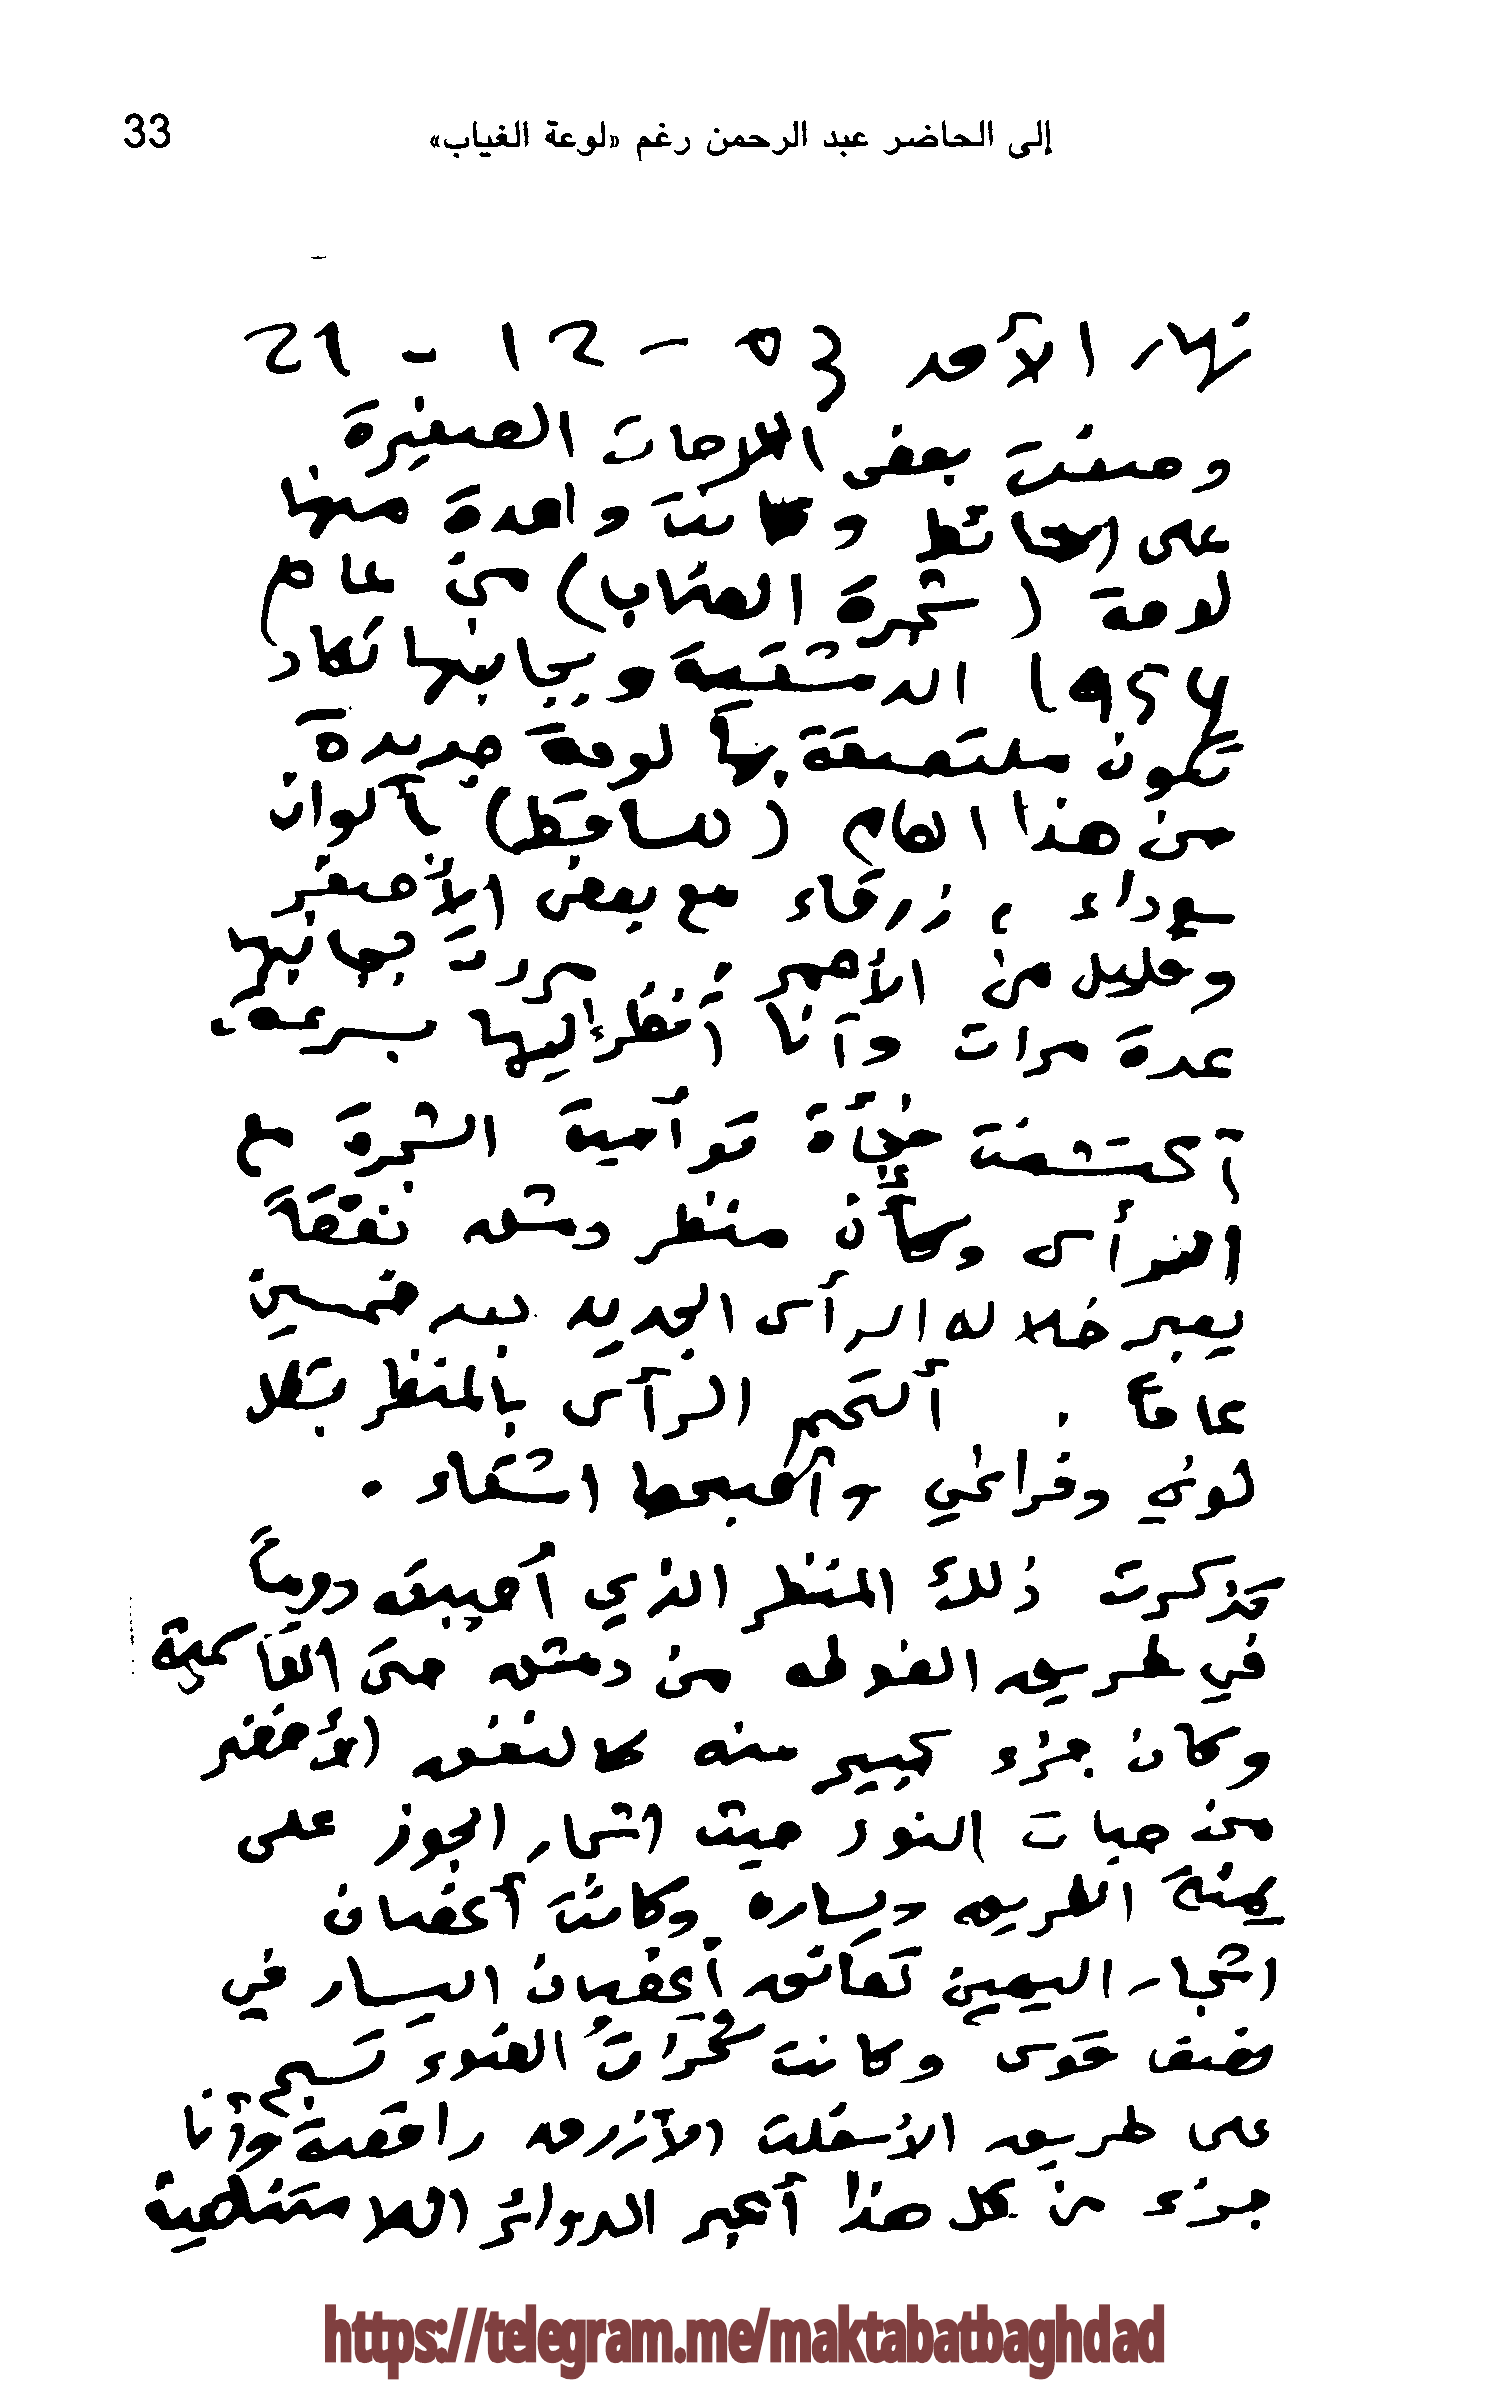 إلى الحاضر عبد الرحمن رغم «لوعة الغياب» 33
نهار الأحد 53 - 12 - 21
وضعت بعض اللوحات الصغيرة
على الحائط وكانت واحدة منها
لوحة (شجرة العناب) من عام
1954 الدمشقية وبجانبها تكاد
تكون ملتصقة بها لوحة جديدة
من هذا العام (للساقط) بألوان
سوداء، زرقاء مع بعض الأصفر
وقليل من الأحمر. مررت بجانبها
عدة مرات وأنا أنظر إليها بسرعة،
أكتشفت فجأة توأمية الشجرة مع
الرأس وكأن منظر دمشق نفقاً
يعبر خلاله الرأس الجديد بعد خمسين
عاماً. ألتحم الرأس بالمنظر بشكل
لوني وفراغي وأصبحا اشقاء.
تذكرت ذلك المنظر الذي أحببته دوماً
في طريق الغوطه من دمشق حتى القاسمية
وكان جزء كبير منه كالنفق الأخضر
من حبات النور حيث اشجار الجوز على
يمنة الطريق ويساره وكانت أغصان
اشجار اليمين تعانق أغصان اليسار في
نصف قوس وكانت الضوء تسبح
على طريق الأسفلت الأزرق راقصة وأنا
جزء من كل هذا أعبر الدوائر اللامتناهية
https://telegram.me/maktabatbaghdad